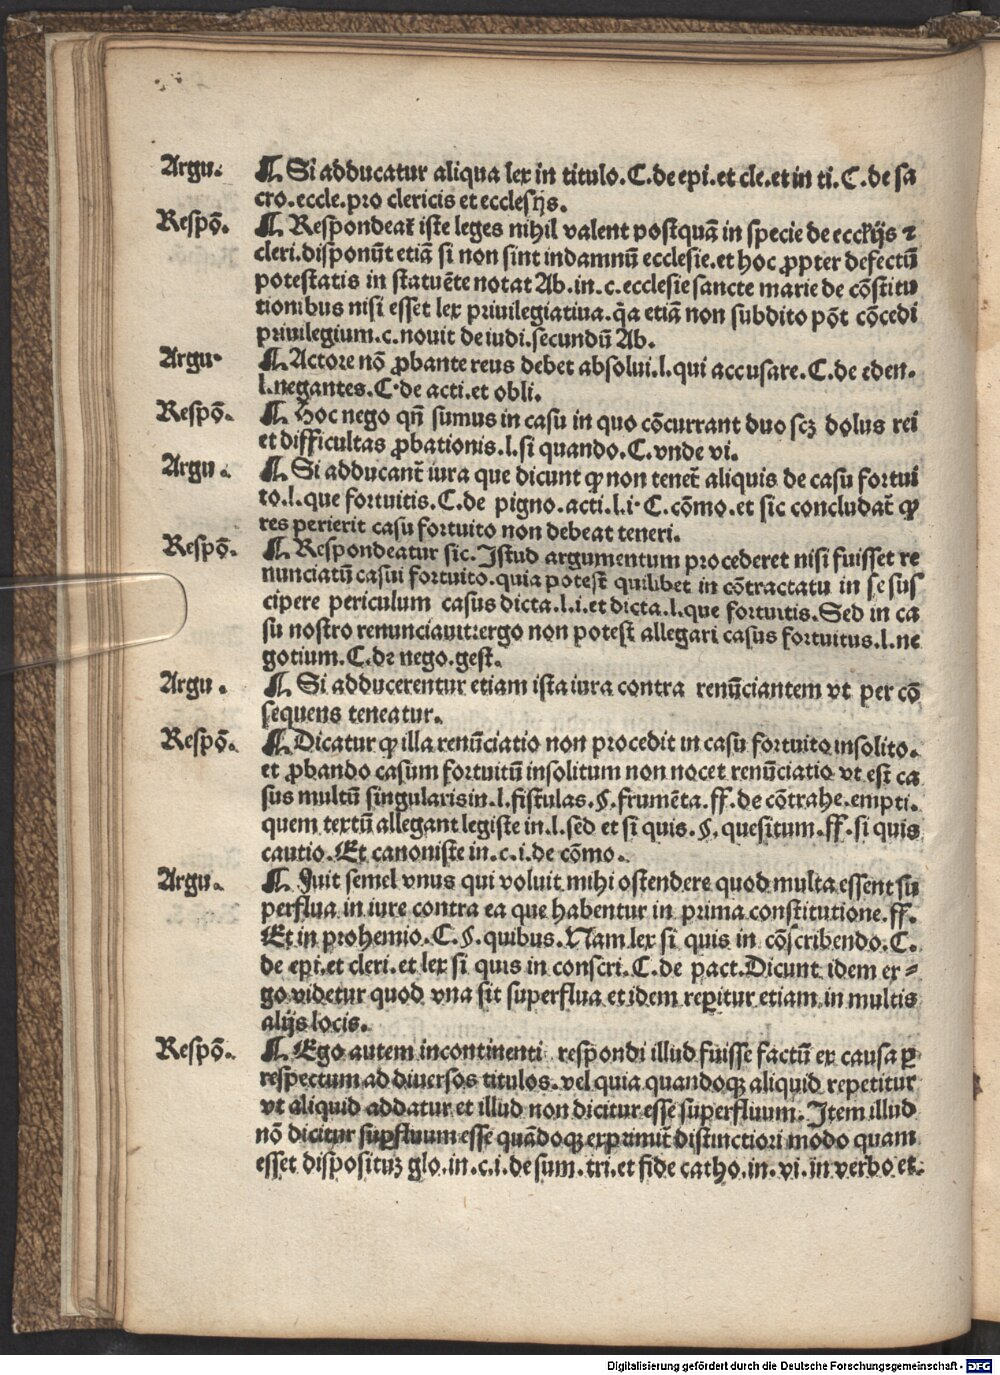 Argu. ¶ Si adducatur aliqua lex in titulo. C. de epi. et cle. et in ti. C. de sa
cro. eccle. pro clericis et ecclesijs.
Respō. ¶ Respondeat̄ iste leges nihil valent postquā in specie de eccłijs ⁊
cleri. disponūt etiā si non sint in damnū ecclesie. et hoc ꝓpter defectū
potestatis in statuēte notat Ab. in. c. ecclesie sancte marie de cōstitu
tionibus nisi esset lex priuilegiatiua. q̄a etiā non subdito pōt cōcedi
priuilegium. c. nouit de iudi. secundū Ab.
Argu. ¶ Actore nō ꝓbante reus debet absolui. l. qui accusare. C. de eden.
l. negantes. C. de acti. et obli.
Respō. ¶ Hoc nego qn̄ sumus in casu in quo cōcurrant duo scꝫ dolus rei
et difficultas ꝓbationis. l. si quando. C. vnde vi.
Argu. ¶ Si adducant̄ iura que dicunt ꝙ non tenet̄ aliquis de casu fortui
to. l. que fortuitis. C. de pigno. acti. l. i. C. cōmo. et sic concludat̄ ꝙ
res perierit casu fortuito non debeat teneri.
Respō. ¶ Respondeatur sic. Istud argumentum procederet nisi fuisset re
nunciatū casui fortuito. quia potest quilibet in cōtractatu in se sus
cipere periculum casus dicta. l. i. et dicta. l. que fortuitis. Sed in ca
su nostro renunciauit: ergo non potest allegari casus fortuitus. l. ne
gotium. C. de nego. gest.
Argu. ¶ Si adducerentur etiam ista iura contra renūciantem vt per cō
sequens teneatur.
Respō. ¶ Dicatur ꝙ illa renūciatio non procedit in casu fortuito insolito.
et ꝓbando casum fortuitū insolitum non nocet renūciatio vt est ca
sus multū singularis in. l. fistulas. §. frumēta. ff. de cōtrahe. empti.
quem textū allegant legiste in. l. sed et si quis. §. quesitum. ff. si quis
cautio. Et canoniste in. c. i. de cōmo.
Argu. ¶ Fuit semel vnus qui voluit mihi ostendere quod multa essent su
perflua in iure contra ea que habentur in prima constitutione. ff.
Et in prohemio. C. §. quibus. Nam lex si quis in cōscribendo. C.
de epi. et cleri. et lex si quis in conscri. C. de pact. Dicunt idem er⸗
go videtur quod vna sit superflua et idem reꝑitur etiam in multis
alijs locis.
Respō. ¶ Ego autem incontinenti respondi illud fuisse factū ex causa ꝑ
respectum ad diuersos titulos. vel quia quandoqꝫ aliquid repetitur
vt aliquid addatur et illud non dicitur esse superfluum. Item illud
nō dicitur suꝑfluum esse quādoqꝫ exprimit̄ distinctiori modo quam
esset dispositū glo. in. c. i. de sum. tri. et fide catho. in. vi. in verbo et.
Digitalisierung gefördert durch die Deutsche Forschungsgemeinschaft - DFG